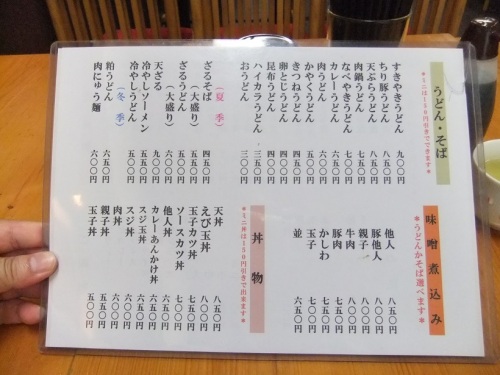 うどん・そば
＊ミニは１５０円引きでできます＊
すきやきうどん 九〇〇円
ちり豚うどん 八五〇円
天ぷらうどん 八五〇円
肉鍋うどん 七五〇円
なべやきうどん
カレーうどん 五五〇円
肉うどん 五五〇円
かやくうどん
きつねうどん 四〇〇円
卵とじうどん 四〇〇円
昆布うどん 四〇〇円
ハイカラうどん 三五〇円
おうどん 三〇〇円
（夏 季）
ざるそば 四五〇円
（大盛り） 五五〇円
ざるうどん 四五〇円
（大盛り） 五五〇円
天ざる 九〇〇円
冷やしソーメン 五五〇円
冷やしうどん 五五〇円
（冬 季）
粕うどん 六五〇円
肉にゅう麺 六〇〇円
味噌煮込み
＊うどんかそば選べます＊
他人 八五〇円
豚他人
親子
牛肉
豚肉
かしわ
玉子
並 六五〇円
丼 物
＊ミニ丼は１５０円引きで出来ます＊
天丼 八五〇円
えび玉丼 八〇〇円
玉子カツ丼 七〇〇円
ソースカツ丼 七〇〇円
他人丼 六五〇円
カレーあんかけ丼 六五〇円
スジ玉丼 六五〇円
スジ丼
肉丼 六〇〇円
親子丼
玉子丼 五〇〇円